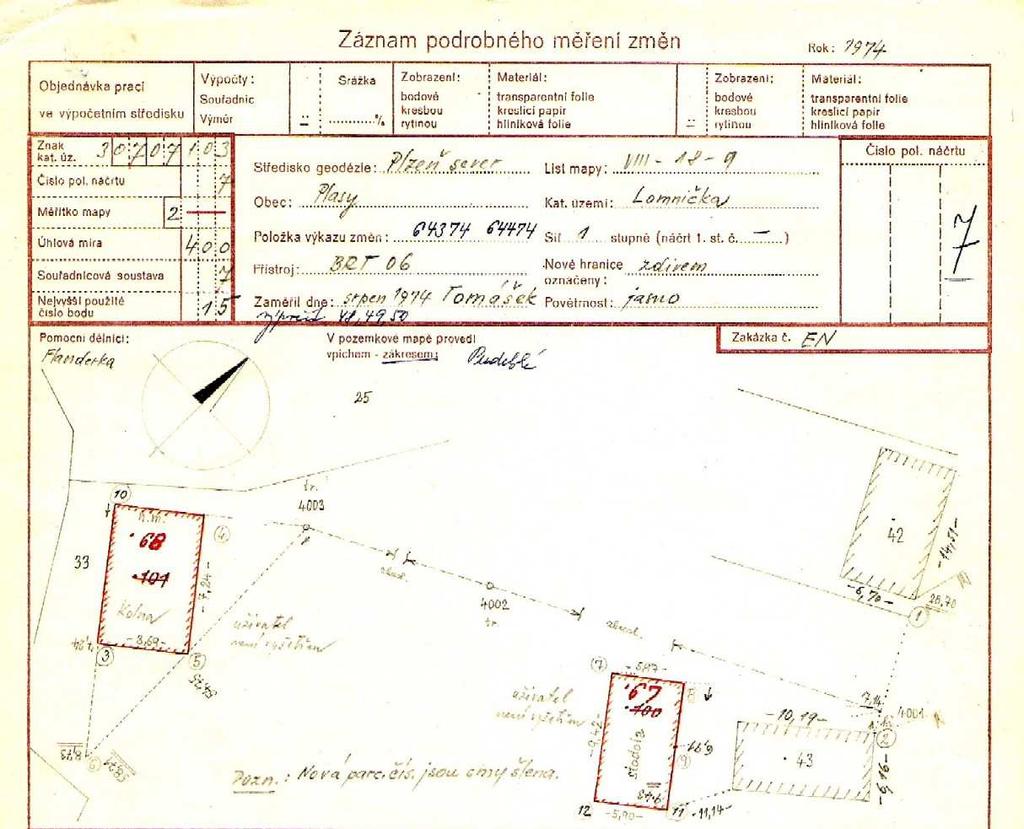 Záznam podrobného měření změn
Rok: 1974
Objednávka prací
ve výpočetním středisku
Výpočty:
Souřadnic
Výměr
Srážka
.........%
Zobrazení:
bodové
kresbou
rytinou
Materiál:
transparentní folie
kreslicí papír
hliníková folie
Zobrazení:
bodové
kresbou
rytinou
Materiál:
transparentní folie
kreslicí papír
hliníková folie
Znak
kat. úz. 30707103
Číslo pol. náčrtu 7
Měřítko mapy 2 —
Úhlová míra 400
Souřadnicová soustava 7
Nejvyšší použité
číslo bodu 15
Středisko geodézie: Plzeň sever
Obec: Plasy
Položka výkazu změn: 64374 64474
Přístroj: BRT 06
Zaměřil dne: srpen 1974 Tomášek
48,49,50
List mapy: VIII - 18-9
Kat. území: Lomnička
Síť 1 stupně (náčrt 1. st. č. — )
Nové hranice
označeny: zdivem
Povětrnost: jasno
Číslo pol. náčrtu
7
Pomocní dělníci:
Flanderka
V pozemkové mapě provedl
vpichem - zákresem:
Zakázka č. EN
25
10
tr.
4003
4
68
101
33
Kolna
-7,24-
-8,69-
3
5
uživatel
není vyšetřen
4002
tr.
42
-14,51-
-6,70-
26,70
1
7
-5,87-
67
100
8
uživatel
není vyšetřen
-9,42-
stodola
9
12
-5,90-
11
-11,14-
-10,19-
43
7,14
4001
2
-6,16-
8,73
Pozn.: Nová parc. čís. jsou smyšlena.